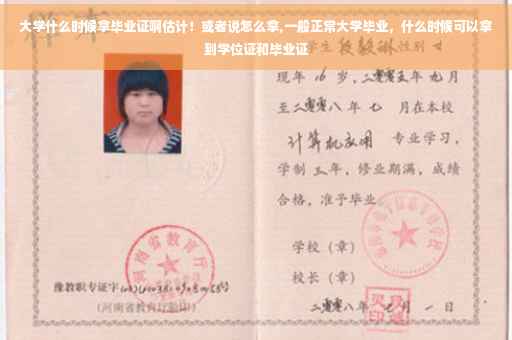 大学什么时候拿毕业证啊估计！或者说怎么拿,一般正常大学毕业，什么时候可以拿
到学位证和毕业证
学生 性别 女
现年 16 岁，二零零五年 九月
至二零零八年 七 月在本校
计算机应用 专业学习，
学制 三 年，修业期满，成绩
合格，准予毕业
学校（章）
校长（章）
二零零八年 月 一 日
河南省教育厅
豫教职专证字
(河南省教育厅验印)